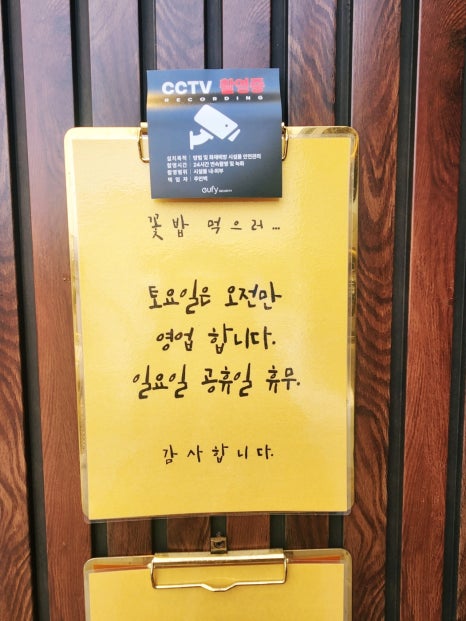 CCTV 촬영중
RECORDING
설치목적 : 방범 및 화재예방 시설물 안전관리
촬영시간 : 24시간 연속촬영 및 녹화
촬영범위 : 시설물 내·외부
책 임 자 : 주인백
eufy SECURITY
꽃밥 먹으러...
토요일은 오전만
영업 합니다.
일요일 공휴일 휴무.
감사합니다.